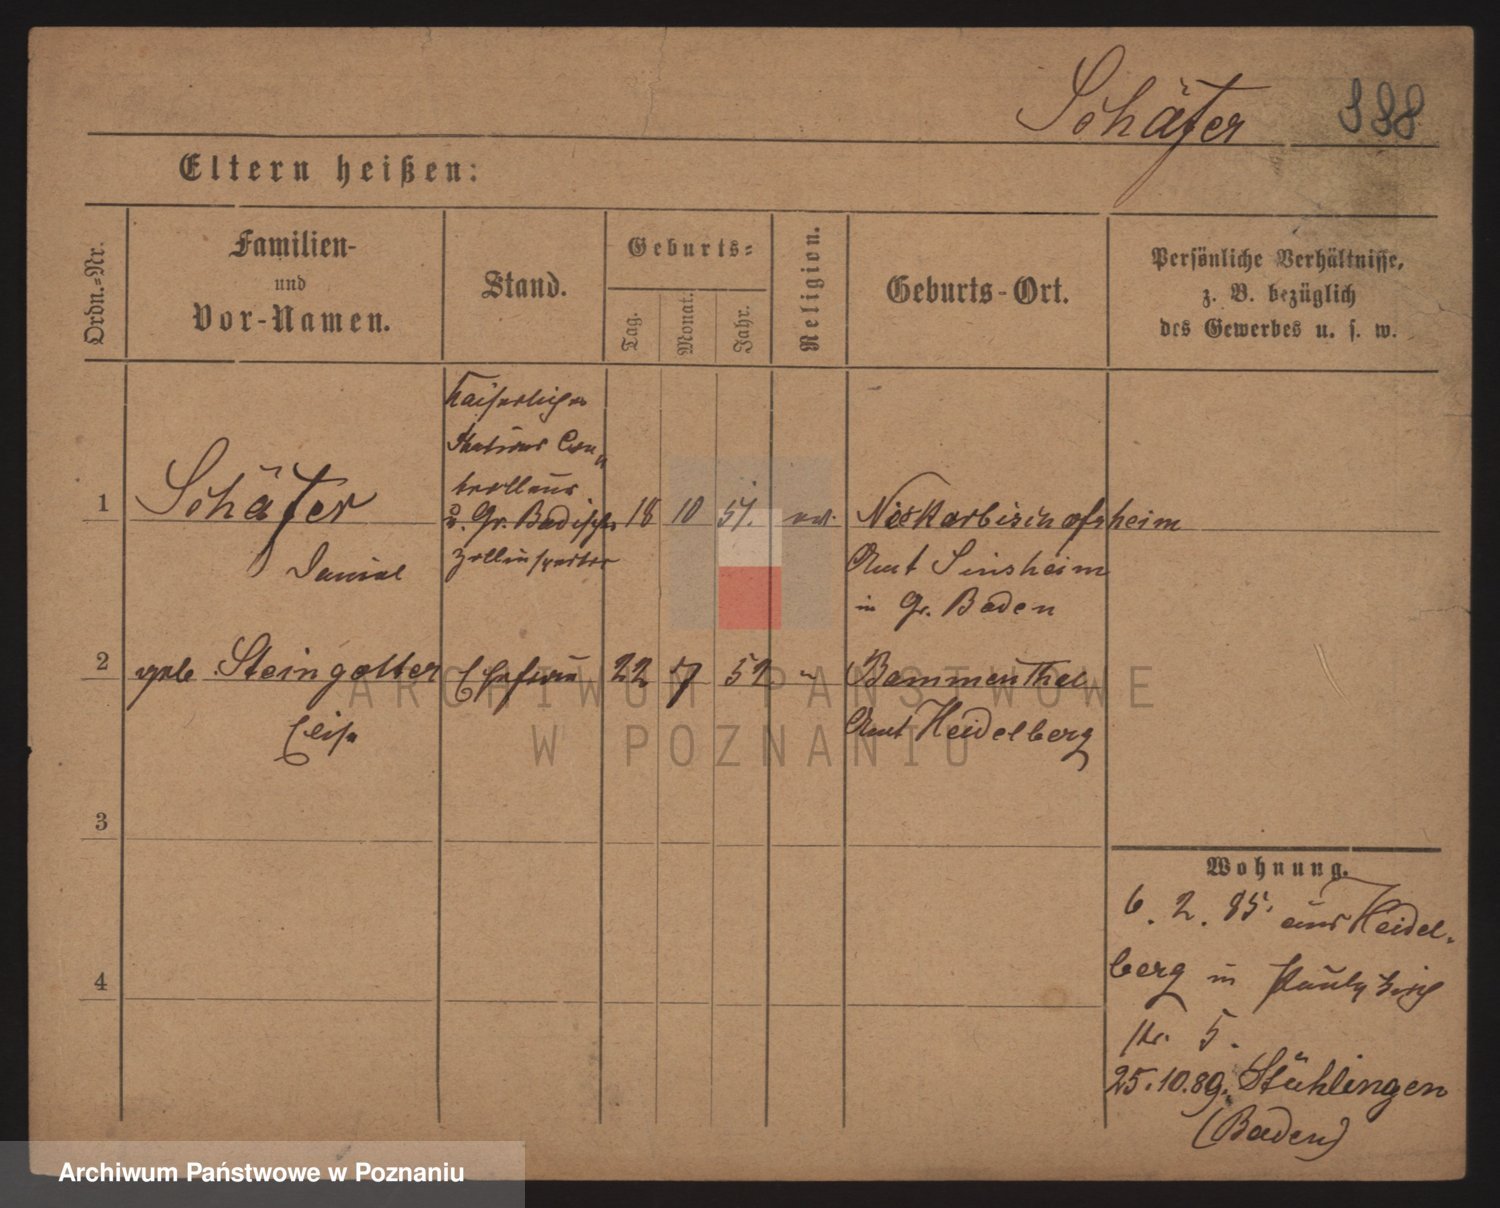 Schäfer 388
Eltern heißen:
Ordn.-Nr.
Familien-
und
Vor-Namen.
Stand.
Geburts-
Tag.
Monat.
Jahr.
Religion.
Geburts-Ort.
Persönliche Verhältnisse,
z. B. bezüglich
des Gewerbes u. s. w.
Kaiserlicher
Stations Con-
trolleur
1 Schäfer u. Gr. Badischer 18 10 51. ev. Neckarbischofsheim
Daniel Zollinspector Amt Sinsheim
in Gr. Baden
2 geb. Steingötter Ehefrau 22 7 52 " Bammenthal
Elise Amt Heidelberg
3
4
Wohnung.
6. 2. 85. aus Heidel-
berg in Pauli Kirch
str. 5.
25.10.89. Stühlingen
(Baden)
ARCHIWUM PAŃSTWOWE
W POZNANIU
Archiwum Państwowe w Poznaniu